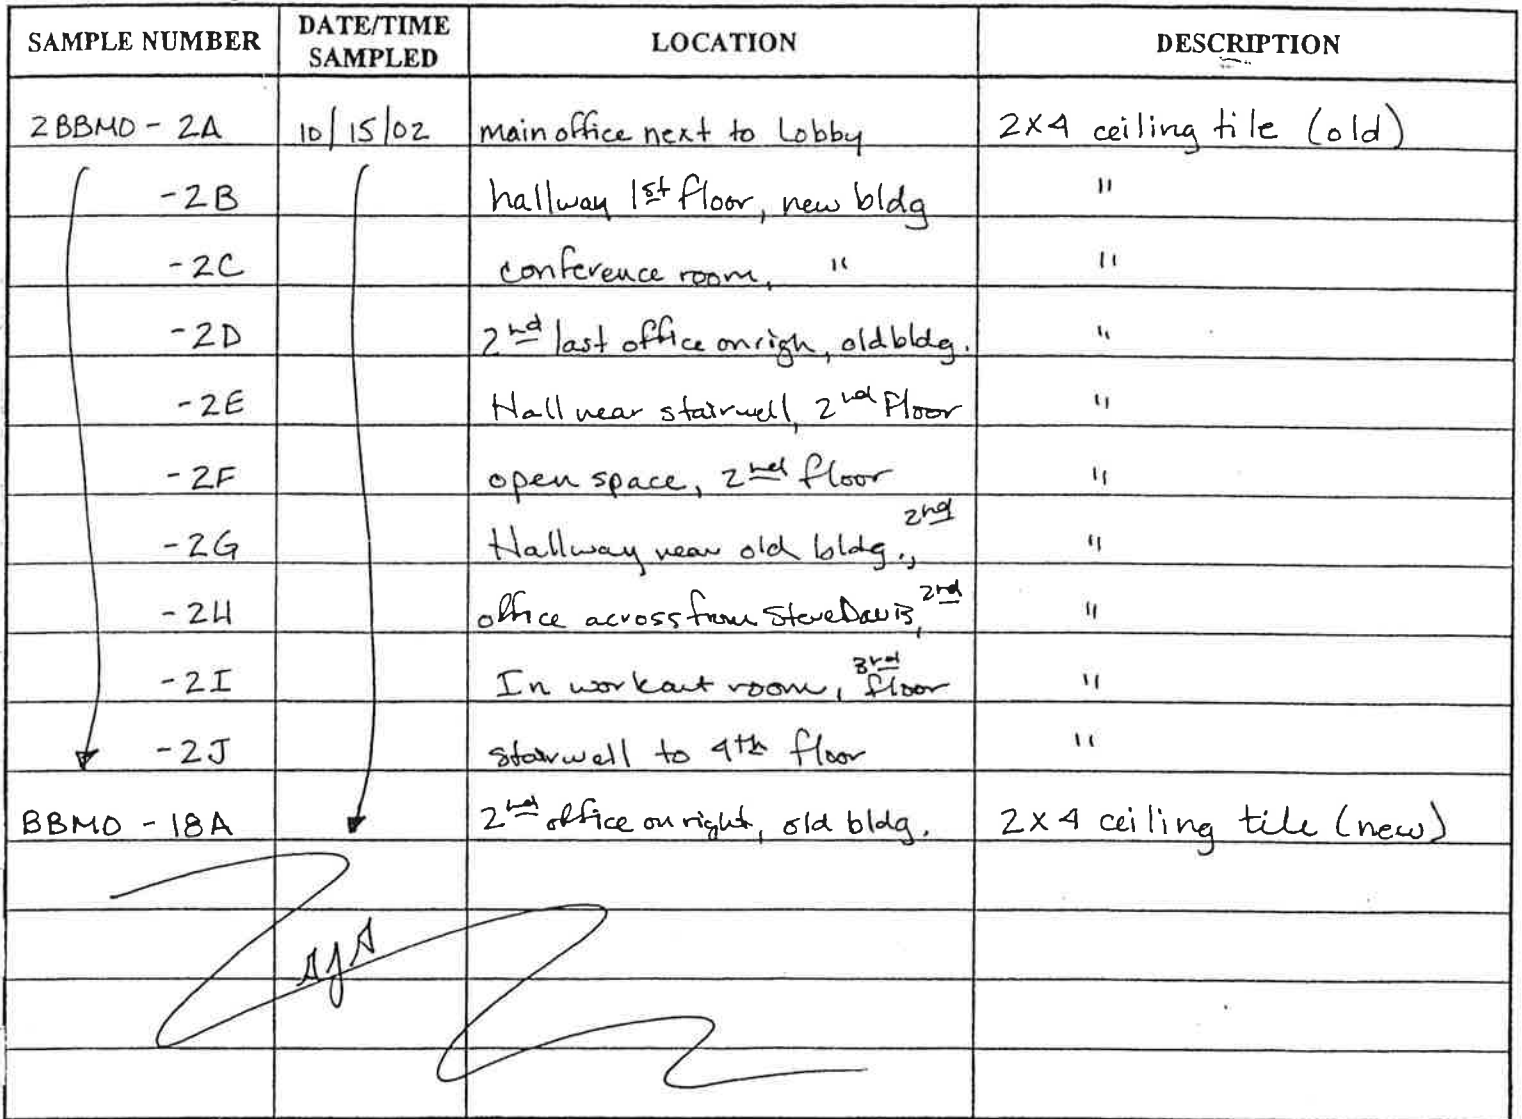 SAMPLE NUMBER DATE/TIME SAMPLED LOCATION DESCRIPTION
2BBMO - 2A 10/15/02 main office next to Lobby 2x4 ceiling tile (old)
-2B hallway 1st floor, new bldg "
-2C conference room, " "
-2D 2nd last office on righ, old bldg. "
-2E Hall near stairwell, 2nd Floor "
-2F open space, 2nd floor "
-2G Hallway near old bldg., 2nd "
-2H office across from Steve Davis, 2nd "
-2I In workout room, 3rd floor "
-2J stairwell to 4th floor "
BBMO - 18A 2nd office on right, old bldg. 2x4 ceiling tile (new)